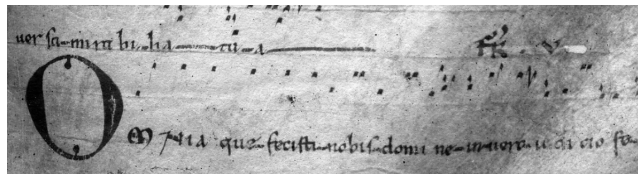 uer sa-mira bi-lia tu-a
OMnia que fecisti nobis domi ne in uero iu di cio fe-